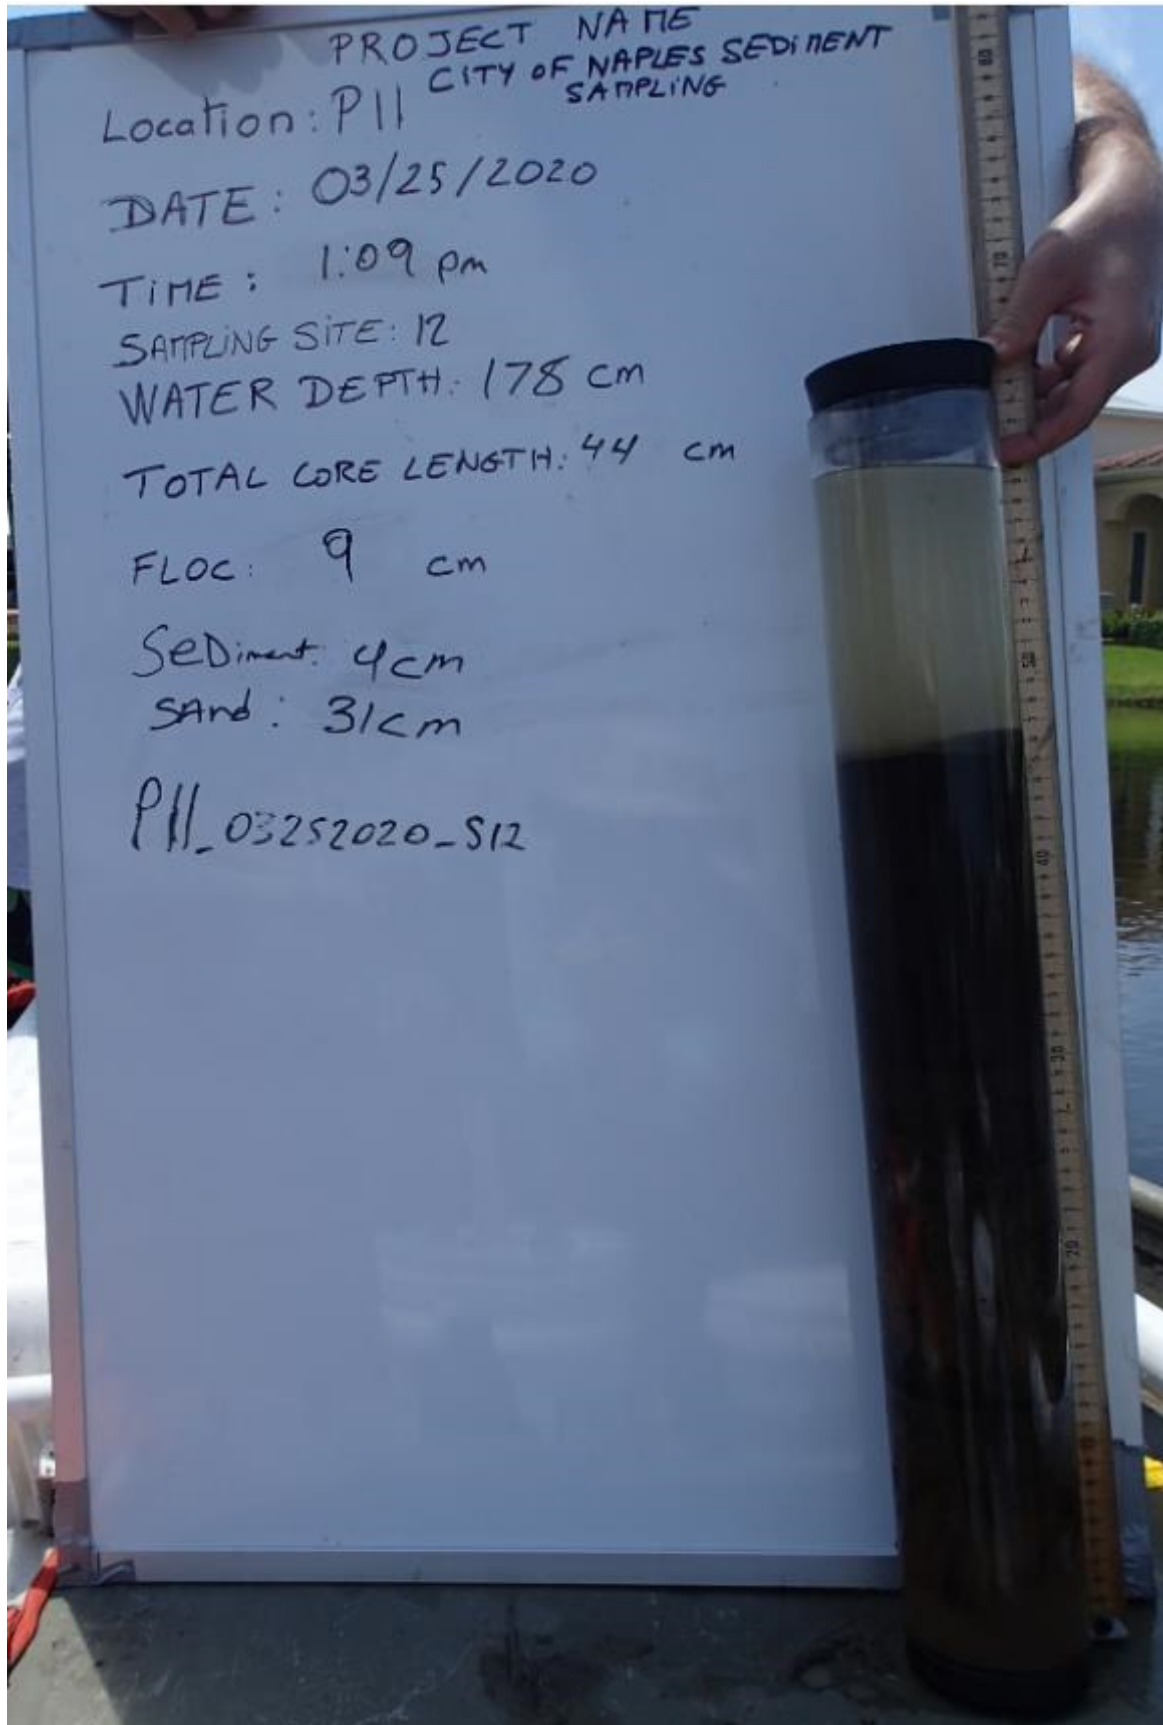 PROJECT NAME
CITY OF NAPLES SEDIMENT
SAMPLING
Location: P11
DATE: 03/25/2020
TIME: 1:09 pm
SAMPLING SITE: 12
WATER DEPTH: 178 cm
TOTAL CORE LENGTH: 44 cm
FLOC: 9 cm
SeDiment: 4cm
SAnd: 31cm
P11_03252020_S12
80
70
50
40
30
20